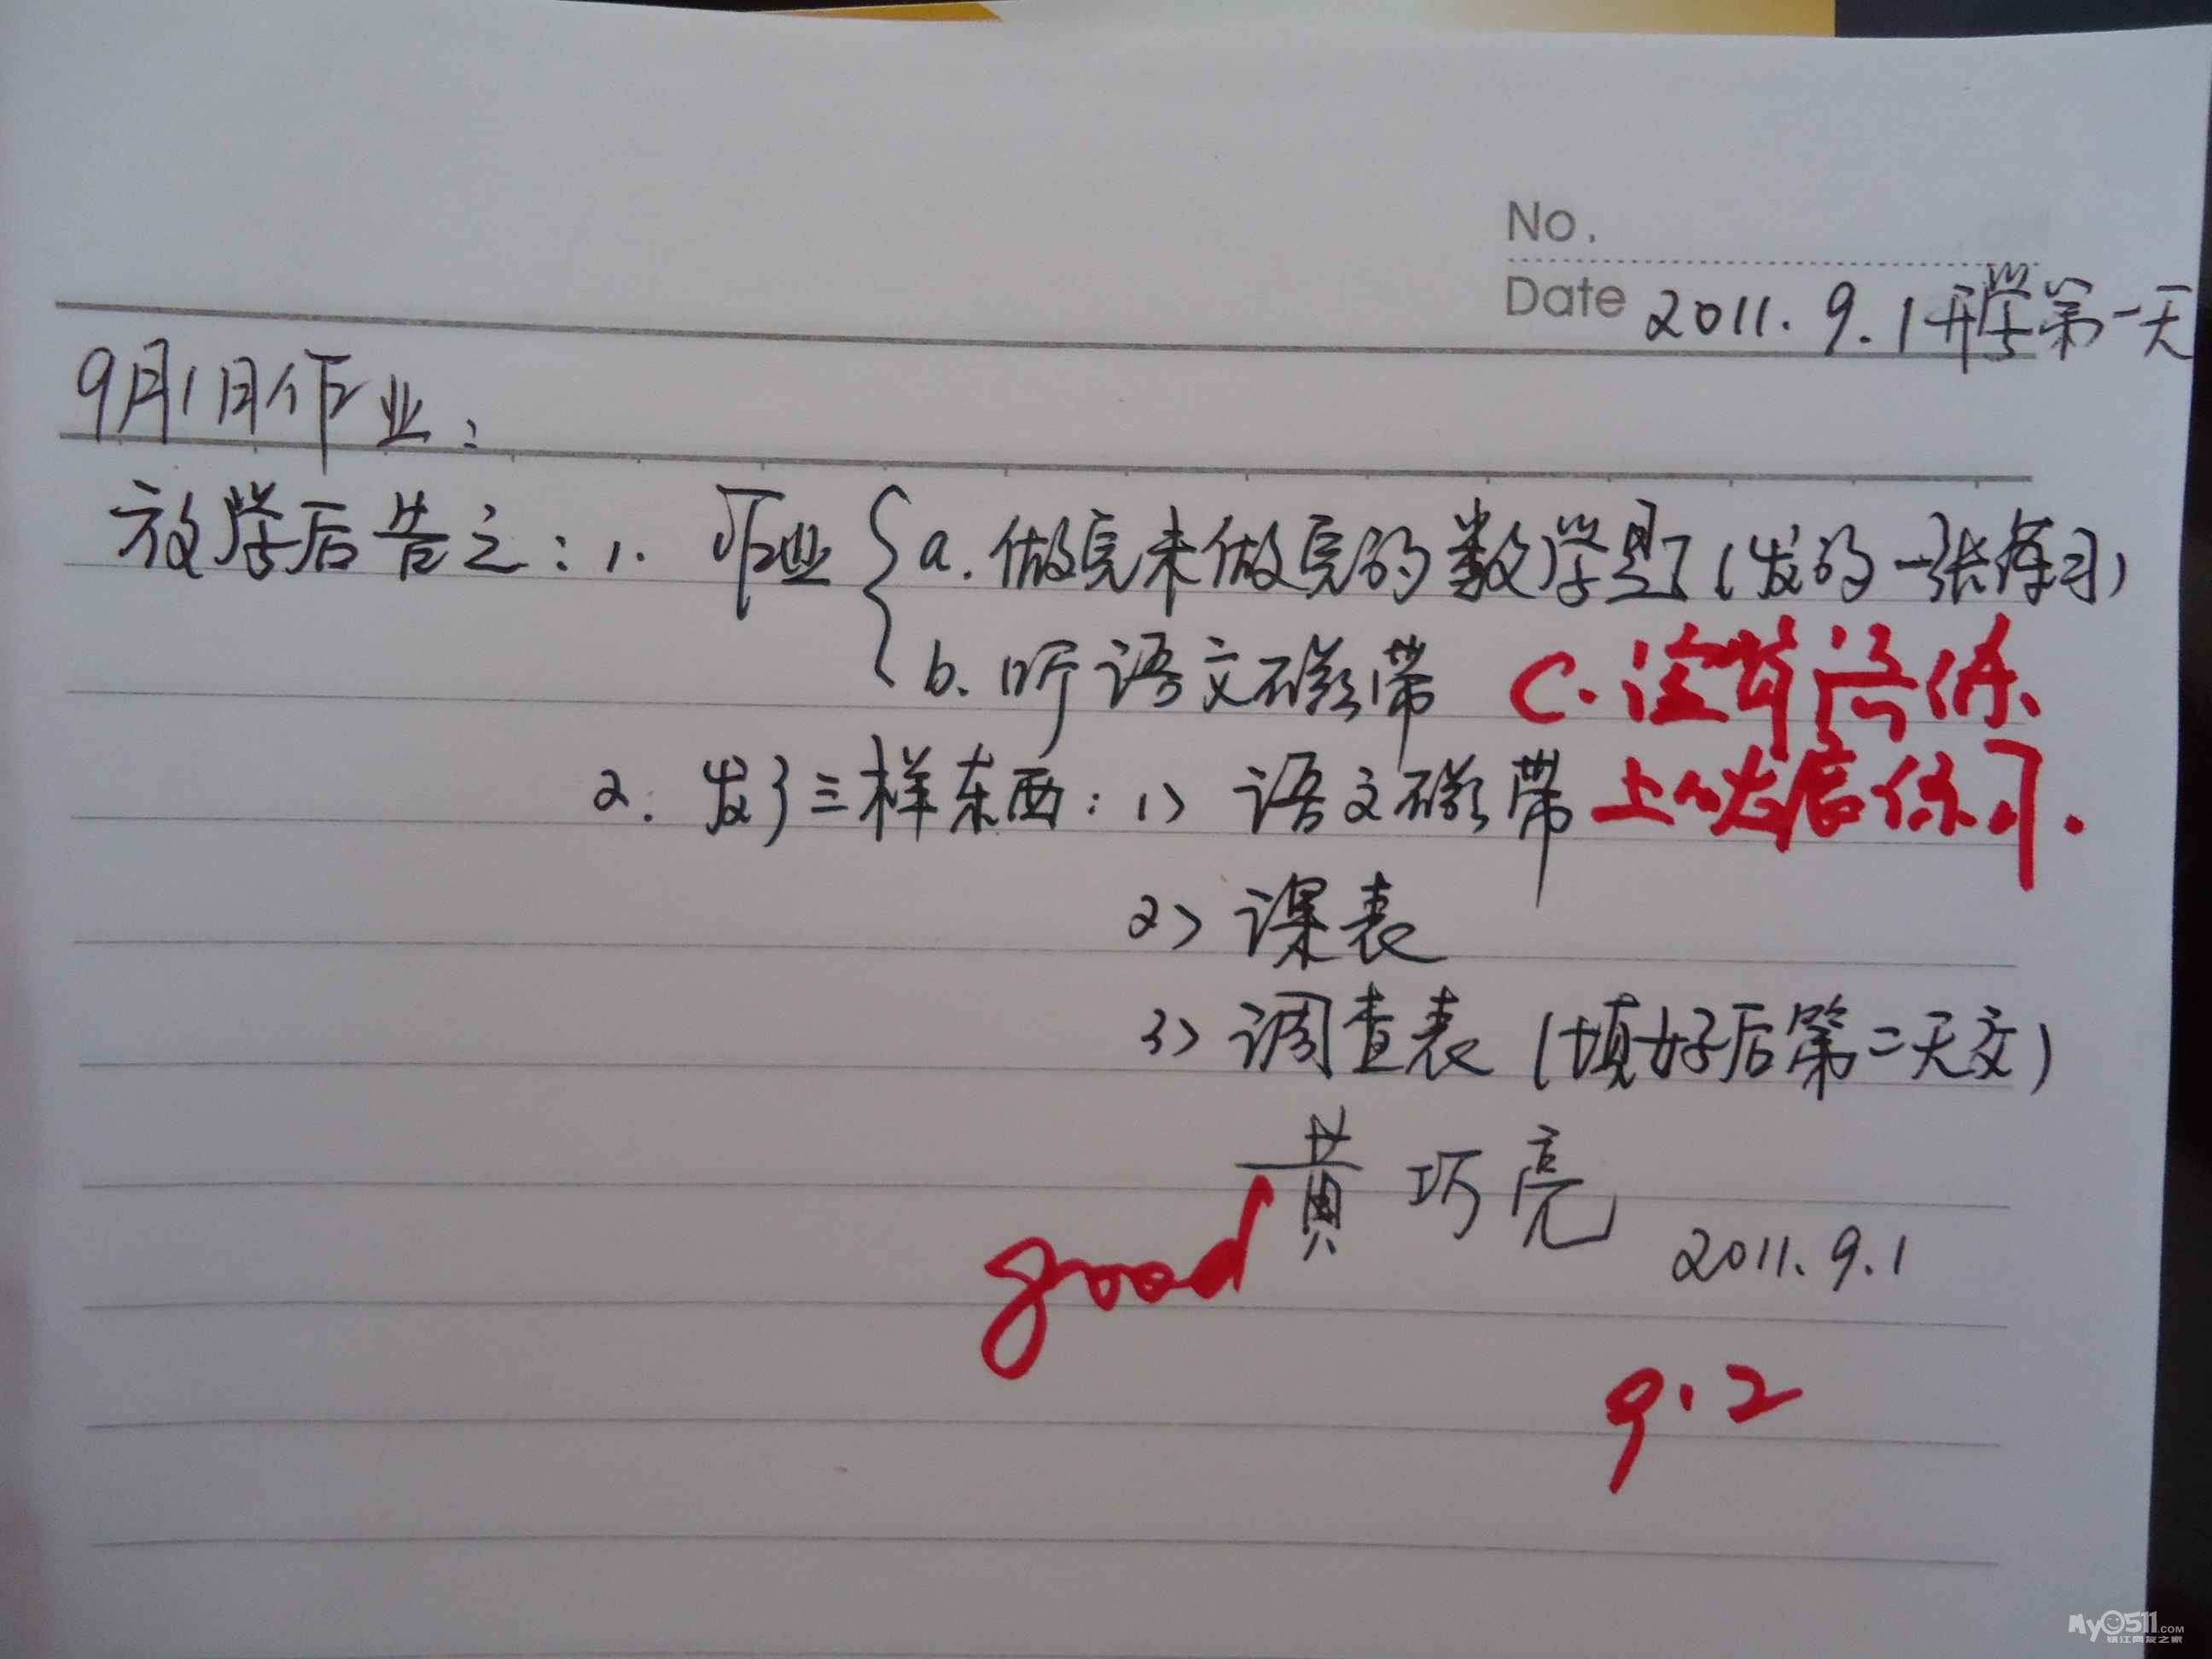 No.
Date 2011.9.1开学第一天
9月1日作业:
放学后告之:1. 作业 { a.做完未做完的数学题(发的一张练习)
b.听语文磁带 C.
2. 发了三样东西:1> 语文磁带 练习.
2> 课表
3> 调查表(填好后第二天交)
黄巧亮
2011.9.1
good
9.2
My0511.COM
镇江网友之家